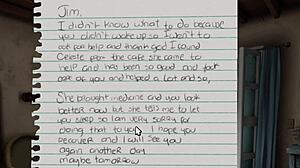 Jim,
I didn't know what to do because
you didn't wake up so I went to
get help and thank god I found
Celeste from the cafe she came to
help and has been so good and took
care of you and helped a lot and so,
She brought medicine and you look
better now but she tells me to let
you sleep so I am very sorry for
doing that to you I hope you
recover and I will see you
again another day
maybe tomorrow